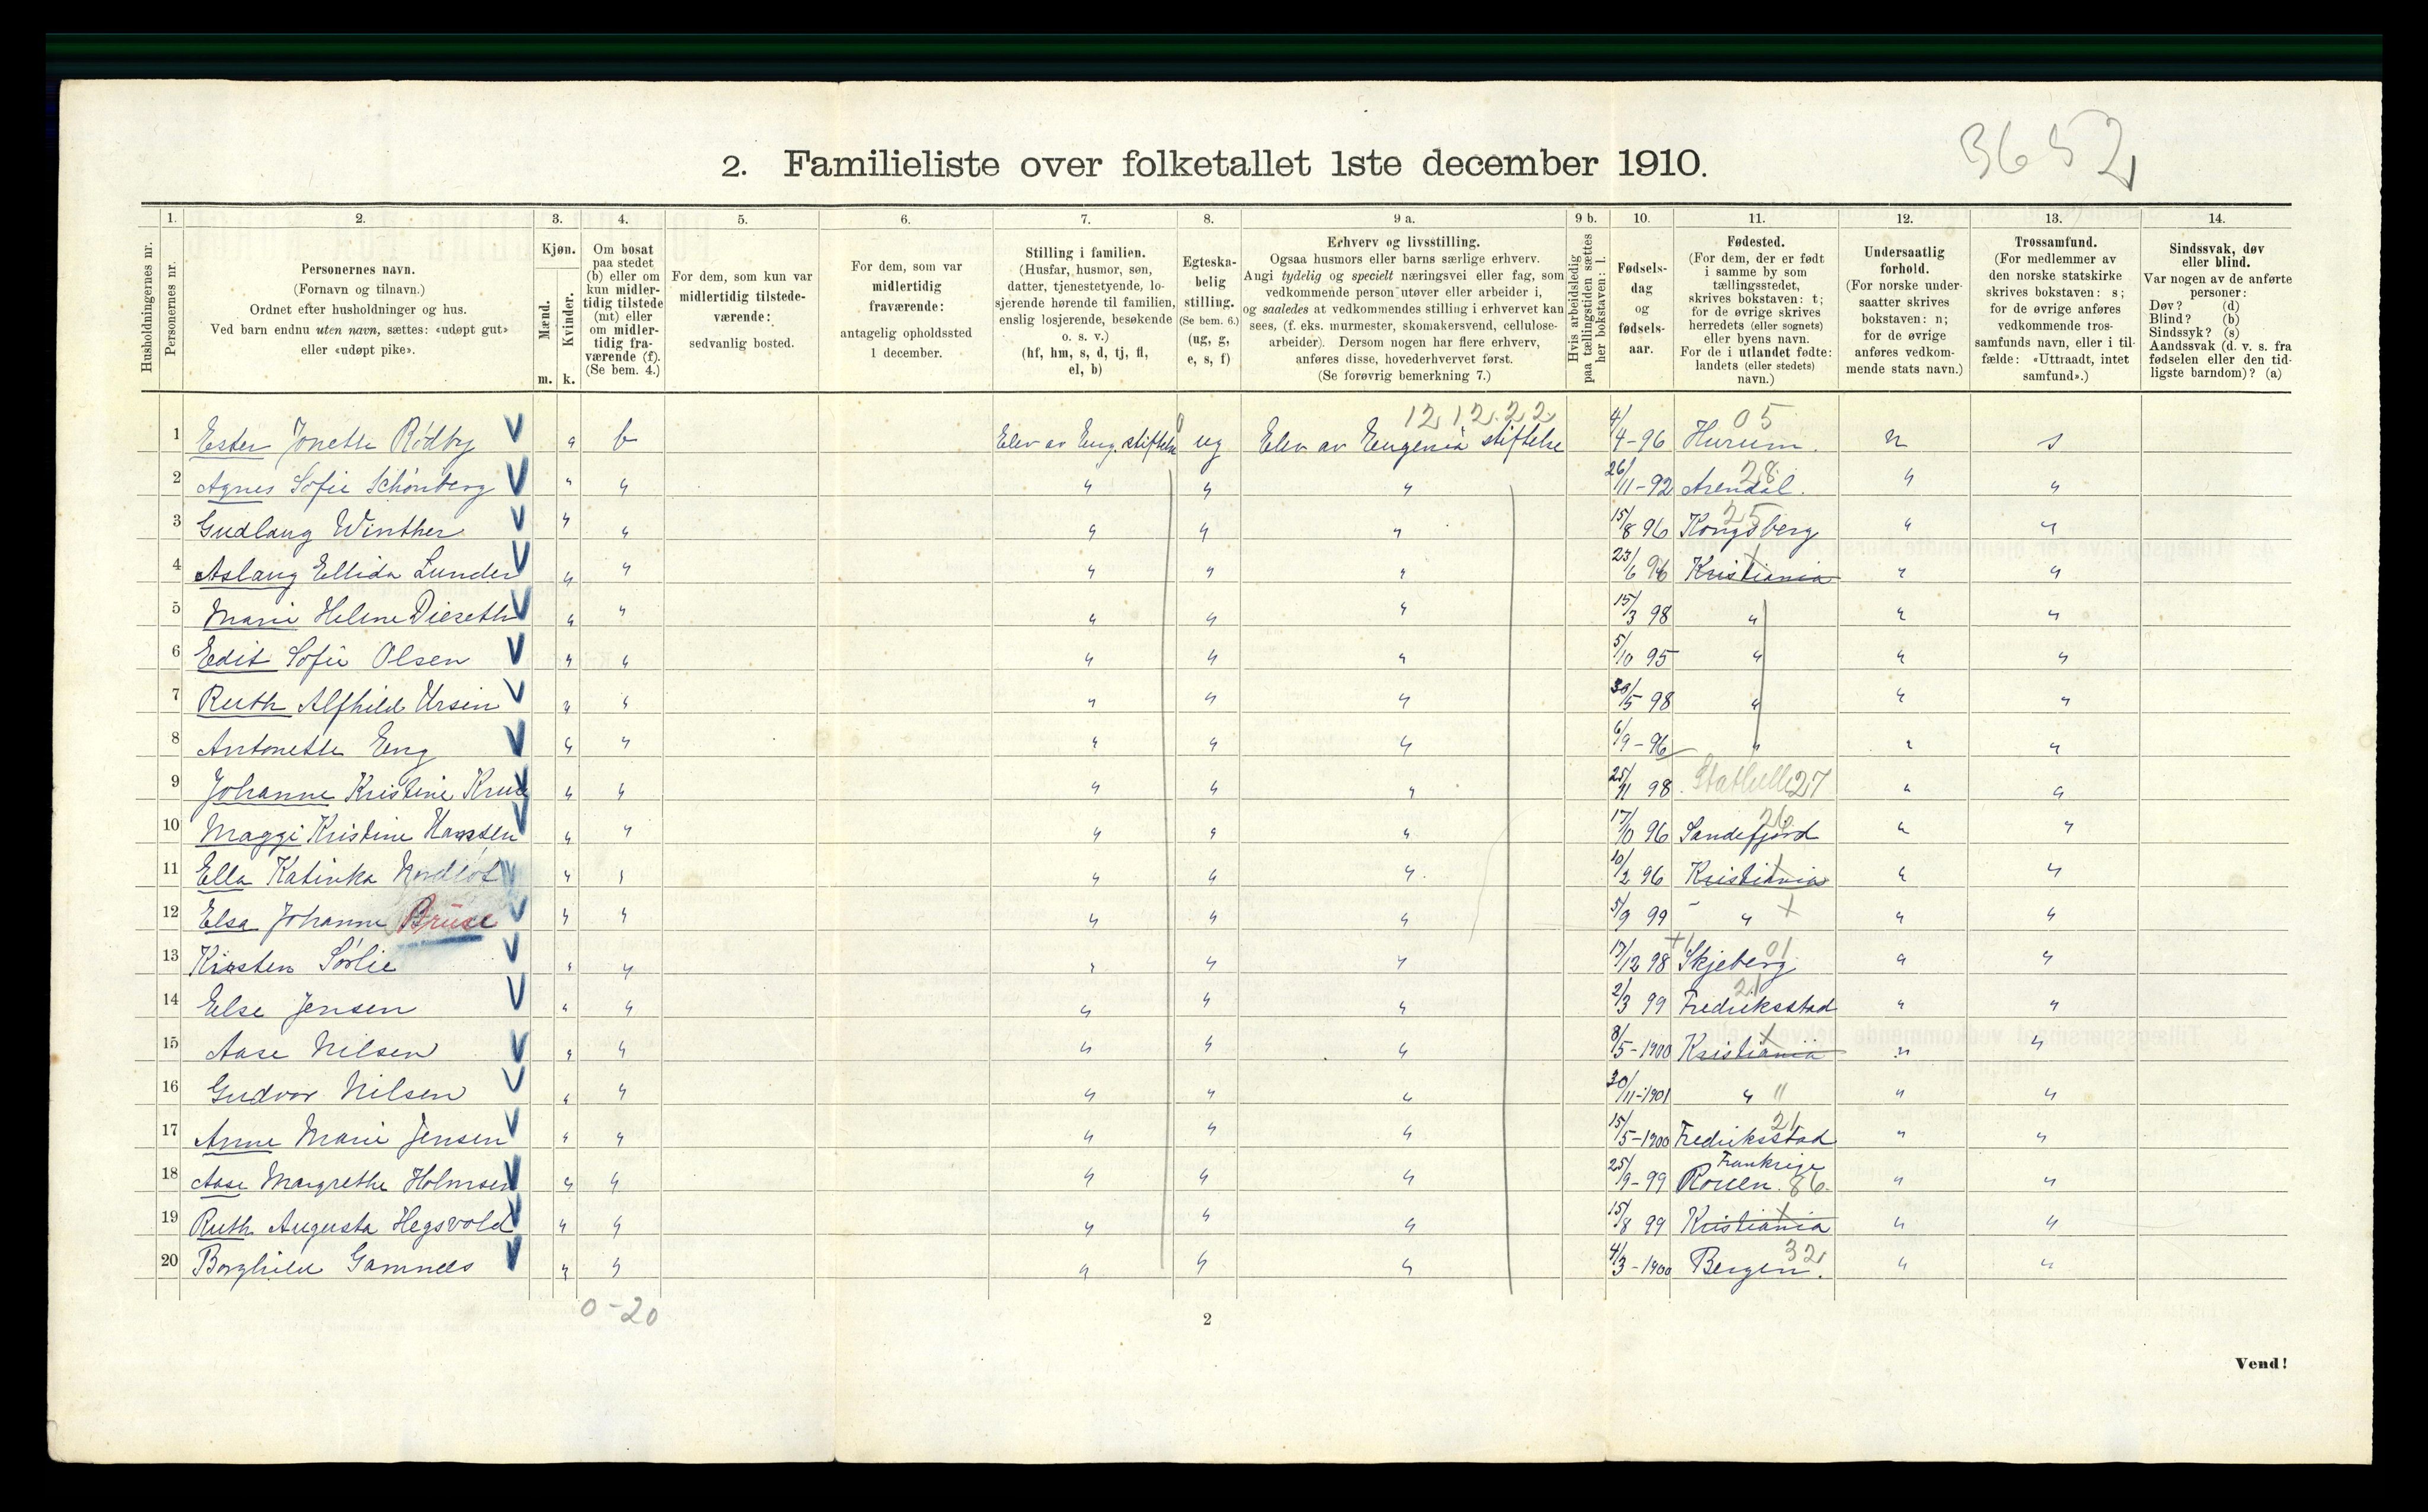 3652
2. Familieliste over folketallet 1ste december 1910.
Husholdningernes nr.
1. Personernes nr.
2. Personernes navn. (Fornavn og tilnavn.) Ordnet efter husholdninger og hus. Ved barn endnu uten navn, sættes: «udøpt gut» eller «udøpt pike».
3. Kjøn. Mænd. m. Kvinder. k.
4. Om bosat paa stedet (b) eller om kun midlertidig tilstede (mt) eller om midlertidig fraværende (f). (Se bem. 4.)
5. For dem, som kun var midlertidig tilstedeværende: sedvanlig bosted.
6. For dem, som var midlertidig fraværende: antagelig opholdssted 1 december.
7. Stilling i familien. (Husfar, husmor, søn, datter, tjenestetyende, losjerende hørende til familien, enslig losjerende, besøkende o. s. v.) (hf, hm, s, d, tj, fl, el, b)
8. Egteskabelig stilling. (Se bem. 6.) (ug, g, e, s, f)
9 a. Erhverv og livsstilling. Ogsaa husmors eller barns særlige erhverv. Angi tydelig og specielt næringsvei eller fag, som vedkommende person utøver eller arbeider i, og saaledes at vedkommendes stilling i erhvervet kan sees, (f. eks. murmester, skomakersvend, cellulosearbeider). Dersom nogen har flere erhverv, anføres disse, hovederhvervet først. (Se forøvrig bemerkning 7.)
9 b. Hvis arbeidsledig paa tællingstiden sættes her bokstaven: l.
10. Fødselsdag og fødselsaar.
11. Fødested. (For dem, der er født i samme by som tællingsstedet, skrives bokstaven: t; for de øvrige skrives herredets (eller sognets) eller byens navn. For de i utlandet fødte: landets (eller stedets) navn.)
12. Undersaatlig forhold. (For norske undersaatter skrives bokstaven: n; for de øvrige anføres vedkommende stats navn.)
13. Trossamfund. (For medlemmer av den norske statskirke skrives bokstaven: s; for de øvrige anføres vedkommende trossamfunds navn, eller i tilfælde: «Uttraadt, intet samfund».)
14. Sindssvak, døv eller blind. Var nogen av de anførte personer: Døv? (d) Blind? (b) Sindssyk? (s) Aandssvak (d. v. s. fra fødselen eller den tidligste barndom)? (a)
12.12.22 05
1 Ester Jonette Rødby V " b Elev av Eug. stiftelse ug Elev av Eugenia stiftelse 4/4-96 Hurum. n s
2 Agnes Sofie Schönberg V " " " " " 26/11-92 Arendal. 28 " "
3 Gudlaug Winther V " " " " " 15/8 96 Kongsberg 25 " "
4 Aslaug Ellida Lunder V " " " " " 23/6 96 Kristiania " "
5 Marie Helene Dieseth V " " " " " 15/3 98 " " "
6 Edit Sofie Olsen V " " " " " 5/10 95 " " "
7 Ruth Alfhild Ursin V " " " " " 30/5 98 " " "
8 Antonette Eng V " " " " " 6/9-96 " " "
9 Johanne Kristine V " " " " " 98 Stathelle 27 " "
10 Maggi Kristine Hansen V " " " " " 17/10 96 Sandefjord 26 " "
11 Ella Katinka V " " " " " 10/2 96 Kristiania " "
12 Elsa Johanne Bruse V " " " " " 5/9 99 " " "
13 Kirsten Sørlie V " " " " " 17/12 98 Skjeberg 01 " "
14 Else Jensen V " " " " " 2/3 99 Fredriksstad 21 " "
15 Aase Nilsen V " " " " " 8/5-1900 Kristiania " "
16 Gudvor Nilsen V " " " " " 30/11-1901 " " "
17 Anne Marie Jensen V " " " " " 15/5-1900 Fredriksstad 21 " "
18 Aase Margrethe Holmsen V " " " " " 25/9-99 Frankrige Rouen. 86 " "
19 Ruth Augusta Hegsvold V " " " " " 15/8 99 Kristiania " "
20 Borghild Gamnes V " " " " " 4/3-1900 Bergen. 32 " "
0-20
2
Vend!